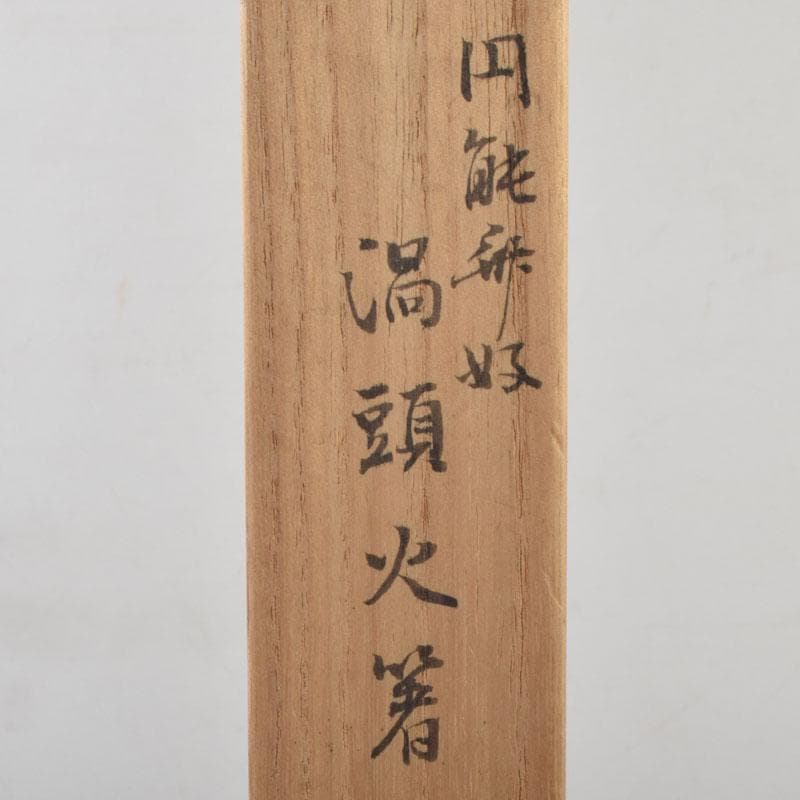 円能斎好
渦頭火箸